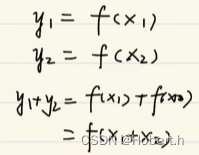 y₁ = f(x₁)
y₂ = f(x₂)
y₁+y₂ = f(x₁)+f(x₂)
= f(x₁+x₂)
CSDN @Robert.h